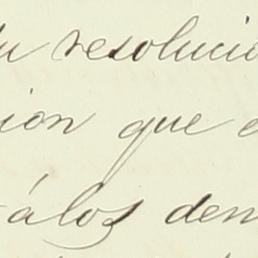 su resolució
ción que e
á los dem